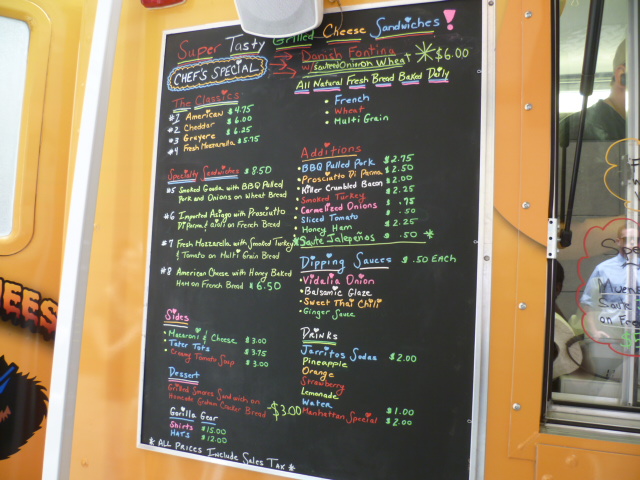 Super Tasty Grilled Cheese Sandwiches!
CHEF'S SPECIAL
Danish Fontina
w/ Sauteed Onion on Wheat $6.00
All Natural Fresh Bread Baked Daily
• French
• Wheat
• Multi Grain
The Classics
#1 American $4.75
#2 Cheddar $6.00
#3 Gruyere $6.25
#4 Fresh Mozzarella $5.75
Specialty Sandwiches $8.50
#5 Smoked Gouda with BBQ Pulled
Pork and Onions on Wheat Bread
#6 Imported Asiago with Prosciutto
Di Parma & on French Bread
#7 Fresh Mozzarella with Smoked Turkey
& Tomato on Multi Grain Bread
#8 American Cheese with Honey Baked
Ham on French Bread $6.50
Additions
• BBQ Pulled Pork $2.75
• Prosciutto Di Parma $2.50
• Killer Crumbled Bacon $2.00
• Smoked Turkey $2.25
• Carmelized Onions $.75
• Sliced Tomato $.50
• Honey Ham $2.25
* Saute Jalepeños $.50 *
Dipping Sauces $.50 EACH
• Vidalia Onion
• Balsamic Glaze
• Sweet Thai Chili
• Ginger Sauce
Sides
• Macaroni & Cheese $3.00
• Tater Tots $3.75
• Creamy Tomato Soup $3.00
Dessert
Grilled Smores Sandwich on
Graham Cracker Bread -$3.00
Gorilla Gear
Shirts $15.00
HATS $12.00
Drinks
Jarritos Sodas $2.00
Pineapple
Orange
Strawberry
Lemonade
Water $1.00
Manhattan Special $2.00
* ALL PRICES INCLUDE SALES TAX *
EESE